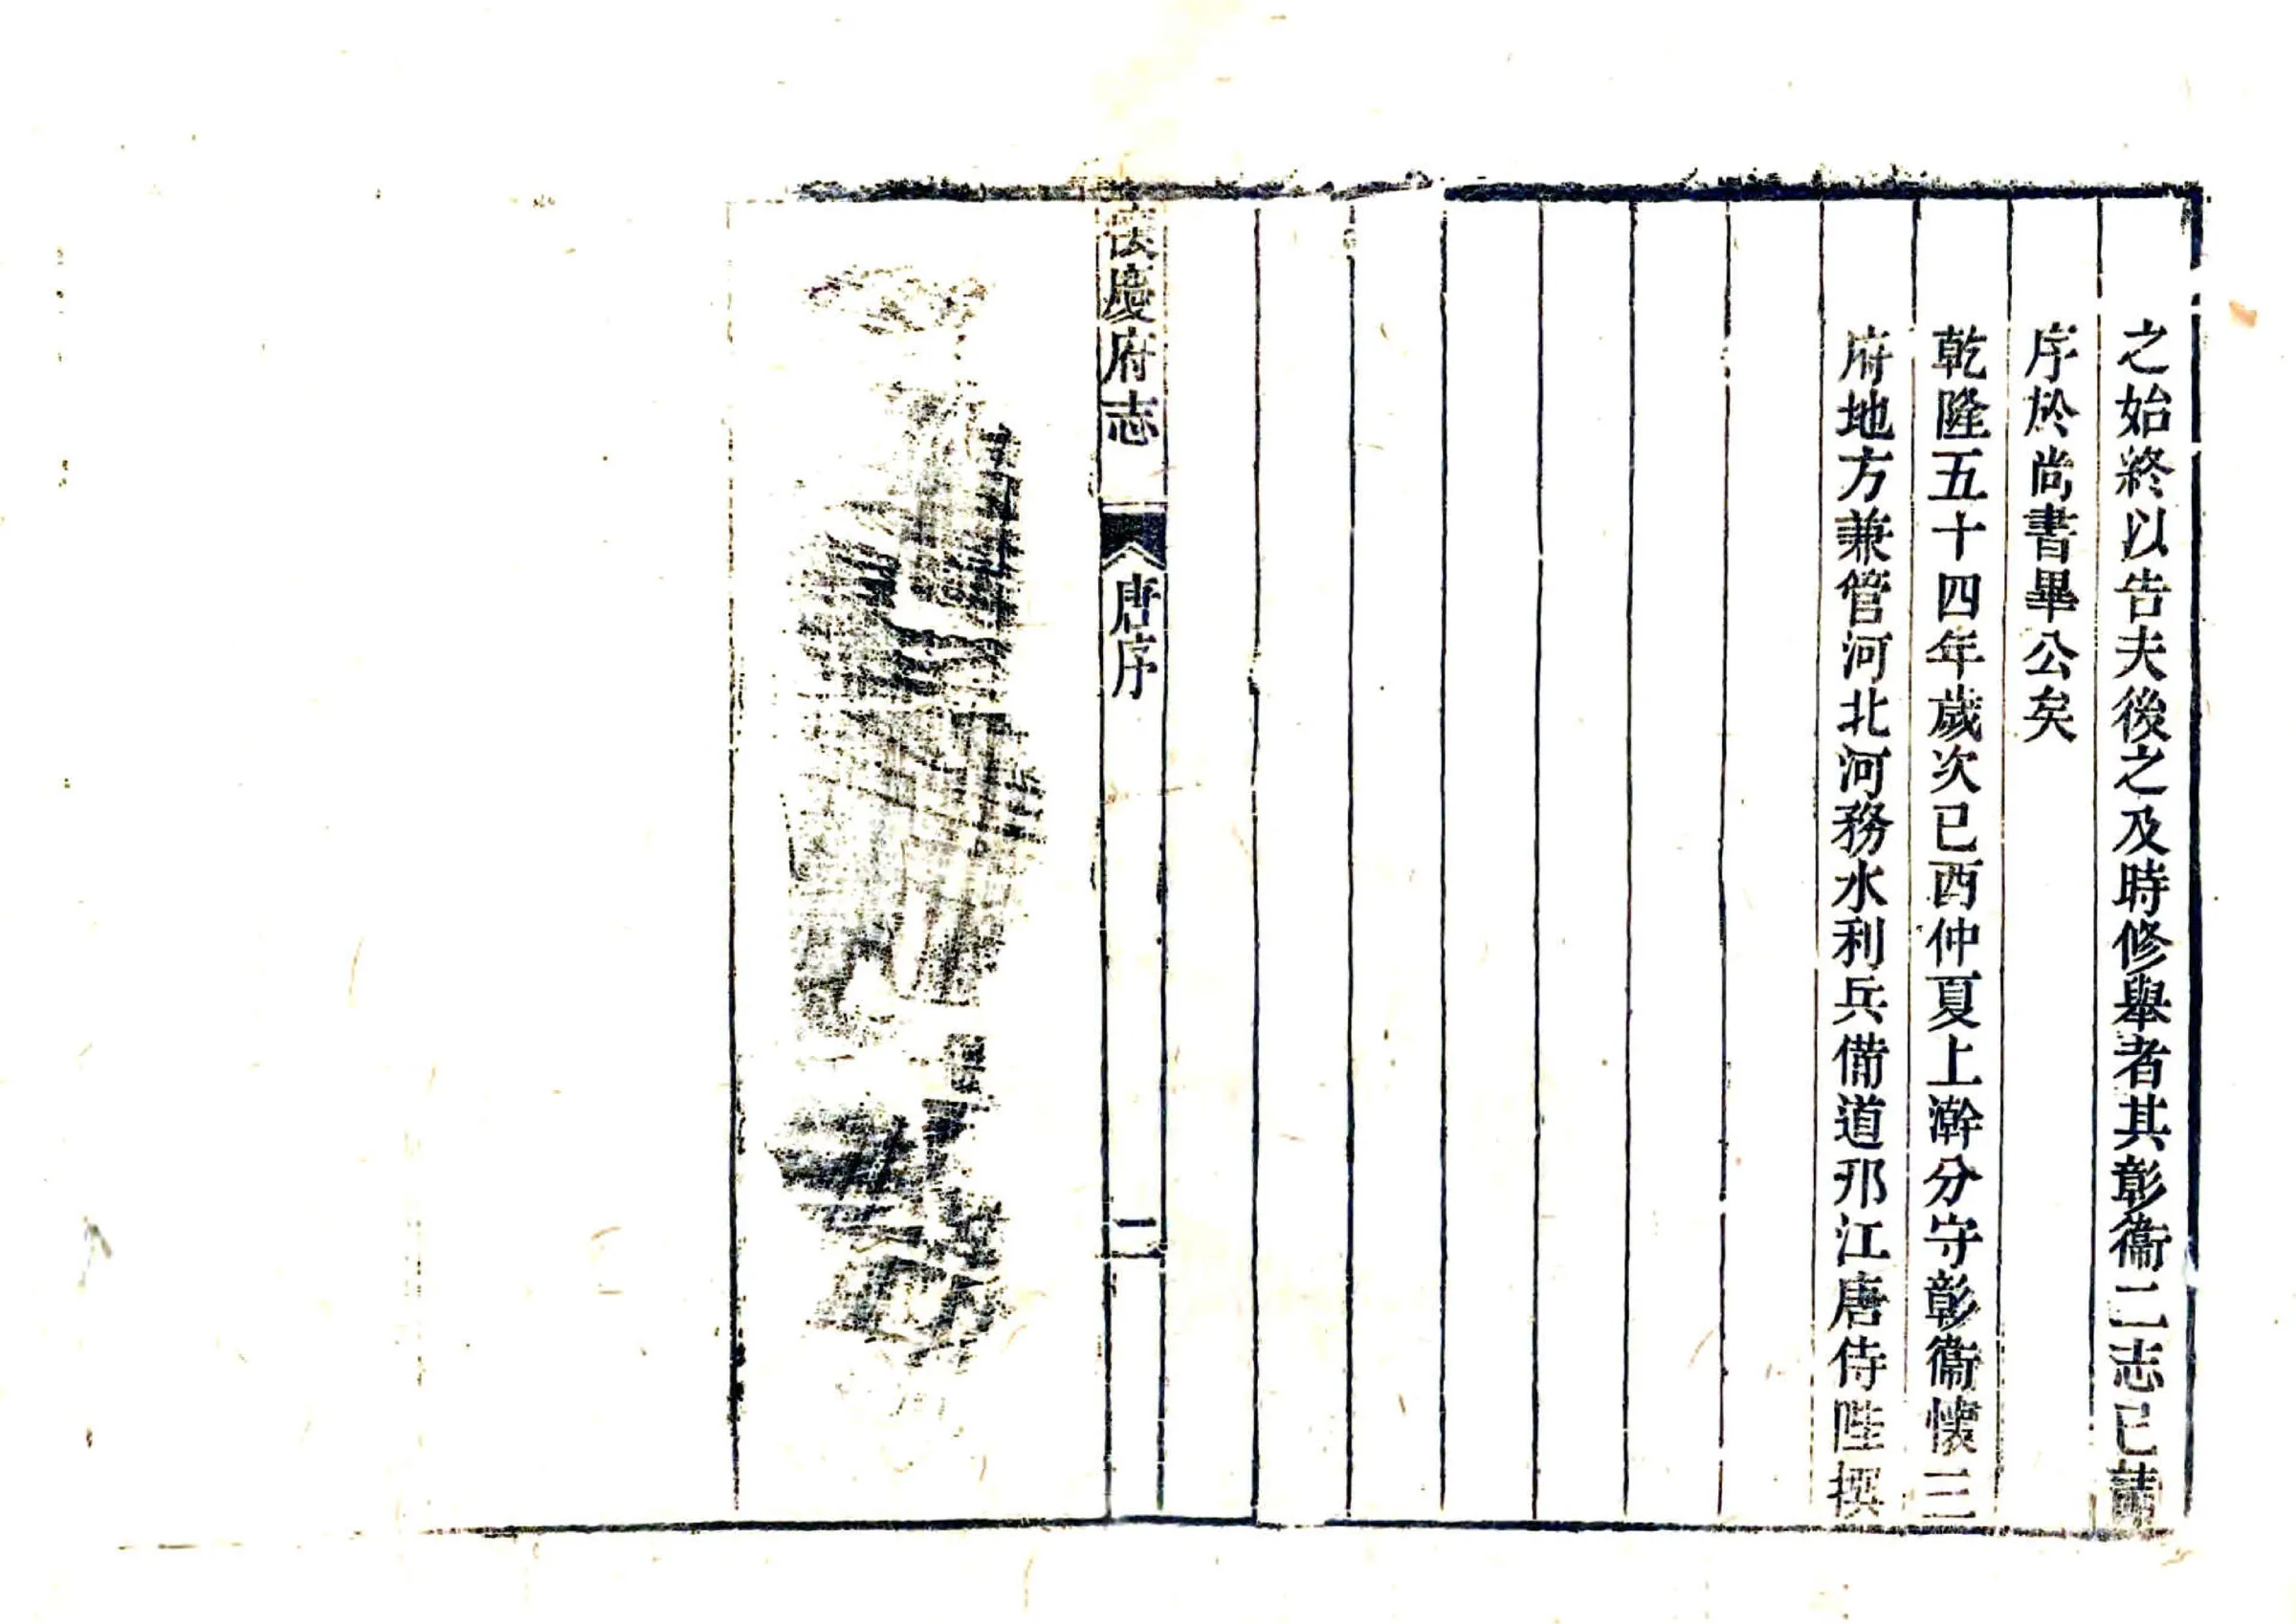 之始終以告夫後之及時修舉者其彰衞二志已請
序於尚書畢公矣
乾隆五十四年歲次己酉仲夏上澣分守彰衞懷三
府地方兼管河北河務水利兵備道邗江唐侍陛撰
懷慶府志
唐序
二